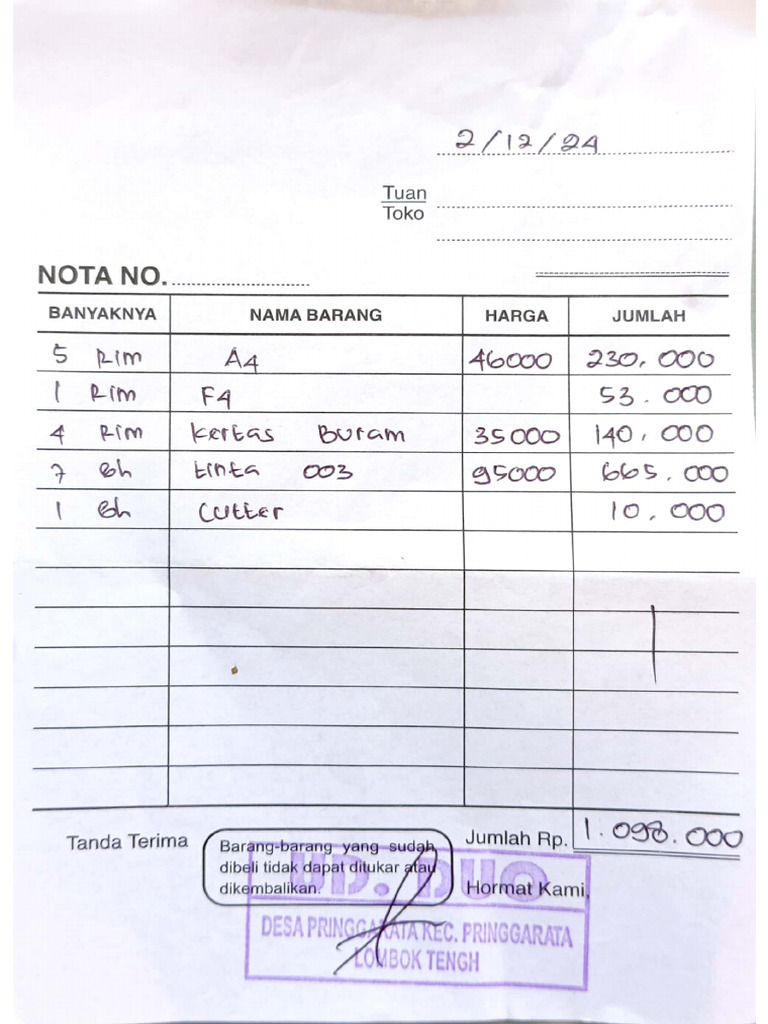 2/12/24
Tuan
Toko
NOTA NO.
BANYAKNYA NAMA BARANG HARGA JUMLAH
5 Rim A4 46000 230.000
1 Rim F4 53.000
4 Rim Kertas Buram 35000 140.000
7 Bh tinta 003 95000 665.000
1 Bh Cutter 10.000
Tanda Terima
Barang-barang yang sudah
dibeli tidak dapat ditukar atau
dikembalikan.
Jumlah Rp. 1.098.000
Hormat Kami,
UD. DUO
DESA PRINGGARATA KEC. PRINGGARATA
LOMBOK TENGH